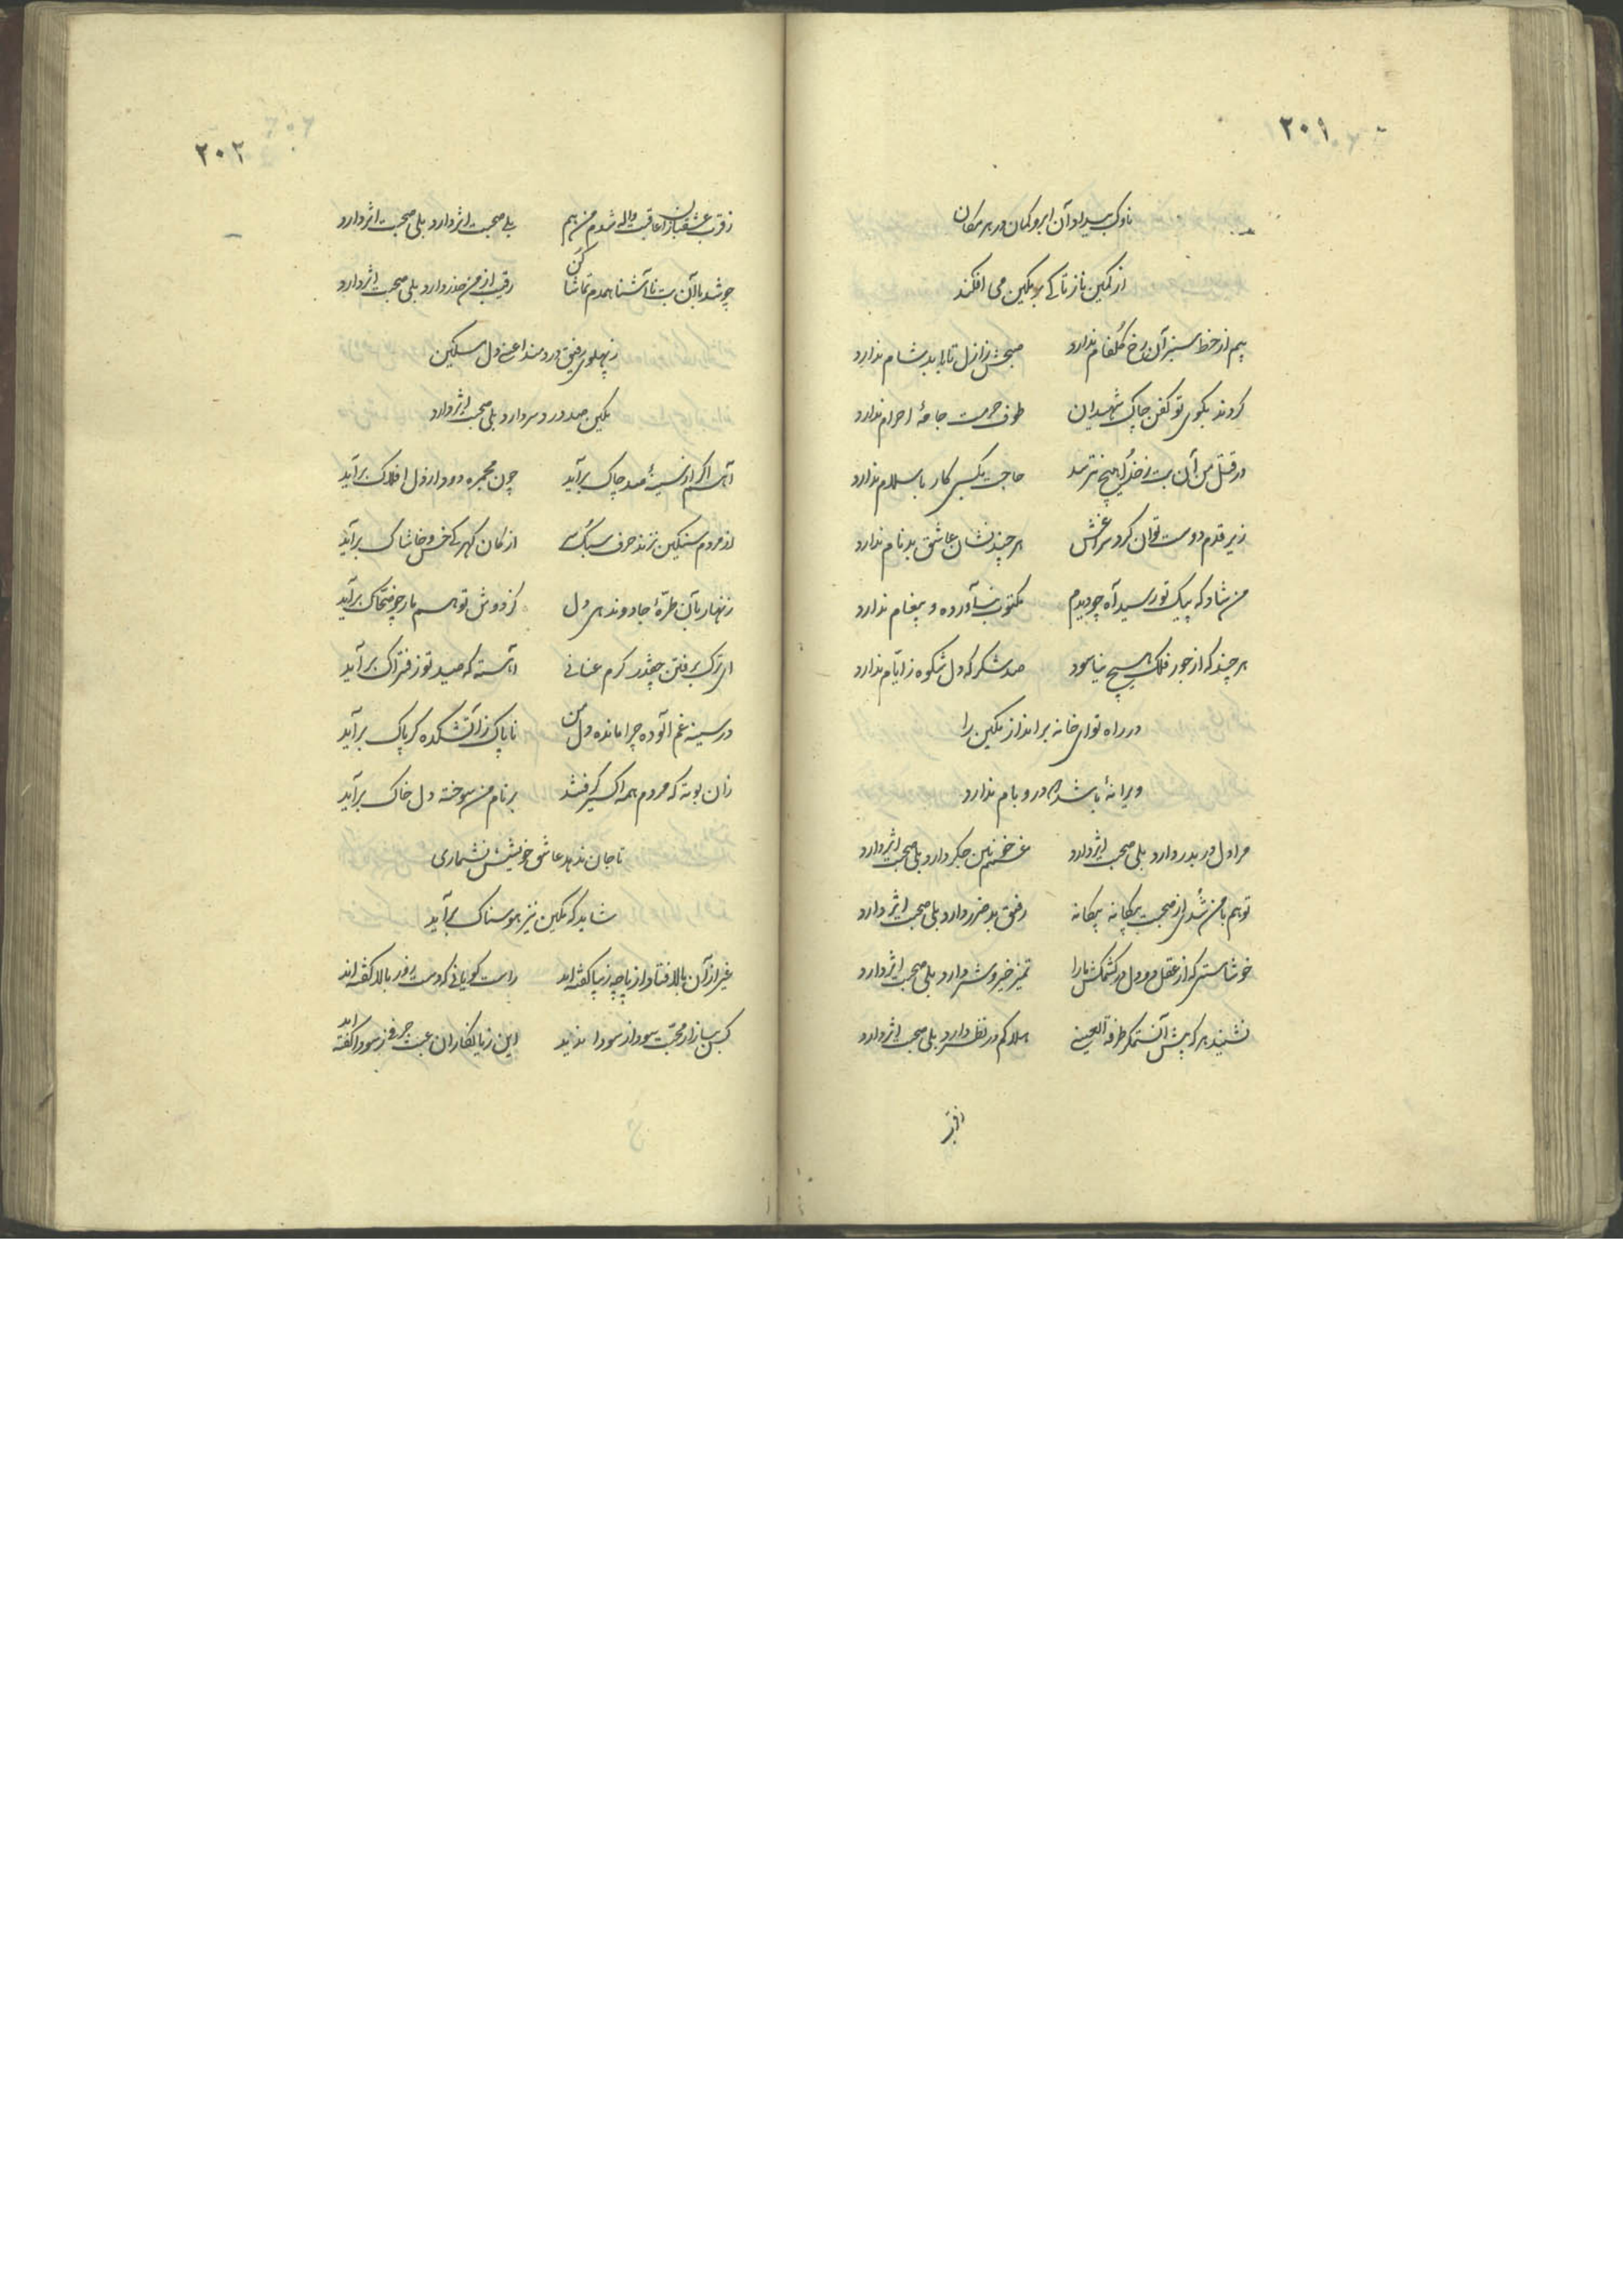 ۲۰۱
ناوک بیداد آن ابرو کمان در هر مکان
از کمین ناز تا کی بر مکین می افکند
بیم از خط سبز آن رخ گلفام ندارد صبحش ز ازل تا به ابد شام ندارد
کردند بکوی تو کفن چاک شهیدان طوف حرمت جامهٔ احرام ندارد
در قتل من آن بت ز خدا هیچ نترسد حاجت بکسی کار باسلام ندارد
زیر قدم دوست توان کرد سراغش هر چند نشان عاشق بدنام ندارد
من شاد که پیک تو رسید آه چو دیدم مکتوب نیاورده و پیغام ندارد
هر چند که از جور فلک هیچ نیاسود صد شکر که دل شکوه ز ایام ندارد
در راه تو ای خانه برانداز مکین را
ویرانهٔ باشد که در و بام ندارد
مرا دل در بدر دارد بلی صحبت اثر دارد غمم خونین جگر دارد بلی صحبت اثر دارد
تو هم با من شدی از صحبت بیگانه بیگانه رفیق بد ضرر دارد بلی صحبت اثر دارد
خوشا مستی که از عقل و دل در کشمکش ما را تمیز خیر و شر دارد بلی صحبت اثر دارد
نشیند هر که پیش آن ستمگر طرفة العینی هلاکم در نظر دارد بلی صحبت اثر دارد
۲۰۲
ز قرب عشقبازان عاقبت واله شدم من هم بلی صحبت اثر دارد بلی صحبت اثر دارد
چو شد با آن بت ناآشنا همدم تماشا کن رقیب از من حذر دارد بلی صحبت اثر دارد
ز پهلوی رفیق دردمند اعنی دل مسکین
مکین صد درد سر دارد بلی صحبت اثر دارد
آهم اگر از سینهٔ صد چاک برآید چون مجمره دود از دل افلاک برآید
از مردم سنگین نزند حرف سبک سر از کان گهر کی خس و خاشاک برآید
زنهار بآن طرهٔ جادو ندهی دل کز دوش تو هم مار چو ضحاک برآید
ای ترک برفتن چقدر گرم عنانی آهسته که صید تو ز فتراک برآید
در سینه غم آلوده چرا مانده دل من ناپاک ز آتشکده گر پاک برآید
زان بوته که مردم همه اکسیر گرفتند بر نام من سوخته دل خاک برآید
تا جان ندهد عاشق خویشش نشماری
شاید که مکین نیز هوسناک برآید
غیر از آن بالا فتاد از پا چه زیبا گفته‌اند راست گویانی که دست زور بالا گفته‌اند
کس ببازار محبت سود از سودا ندید این زیانکاران عبث حرفی ز سودا گفته‌اند